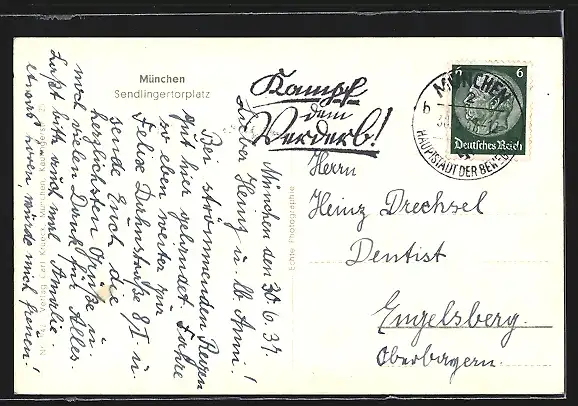 München
Sendlingertorplatz
Kampf
dem
Verderb!
MÜNCHEN
HAUPTSTADT DER BEWEGUNG
6
Deutsches Reich
Herrn
Heinz Drechsel
Dentist
Engelsberg.
Oberbayern.
Echte Photographie
München den 30.6.37
Lieber Heinz u. lb. Anni!
Bei strömmenden Regen
gut hier gelandet. Fahre
so eben weiter mir
Felix Dahnstraße 8 I u.
sende Euch die
herzlichsten Grüße u.
noch vielen Dank für Alles.
Laßt bitte auch mal
etwas hören, würde mich freuen!